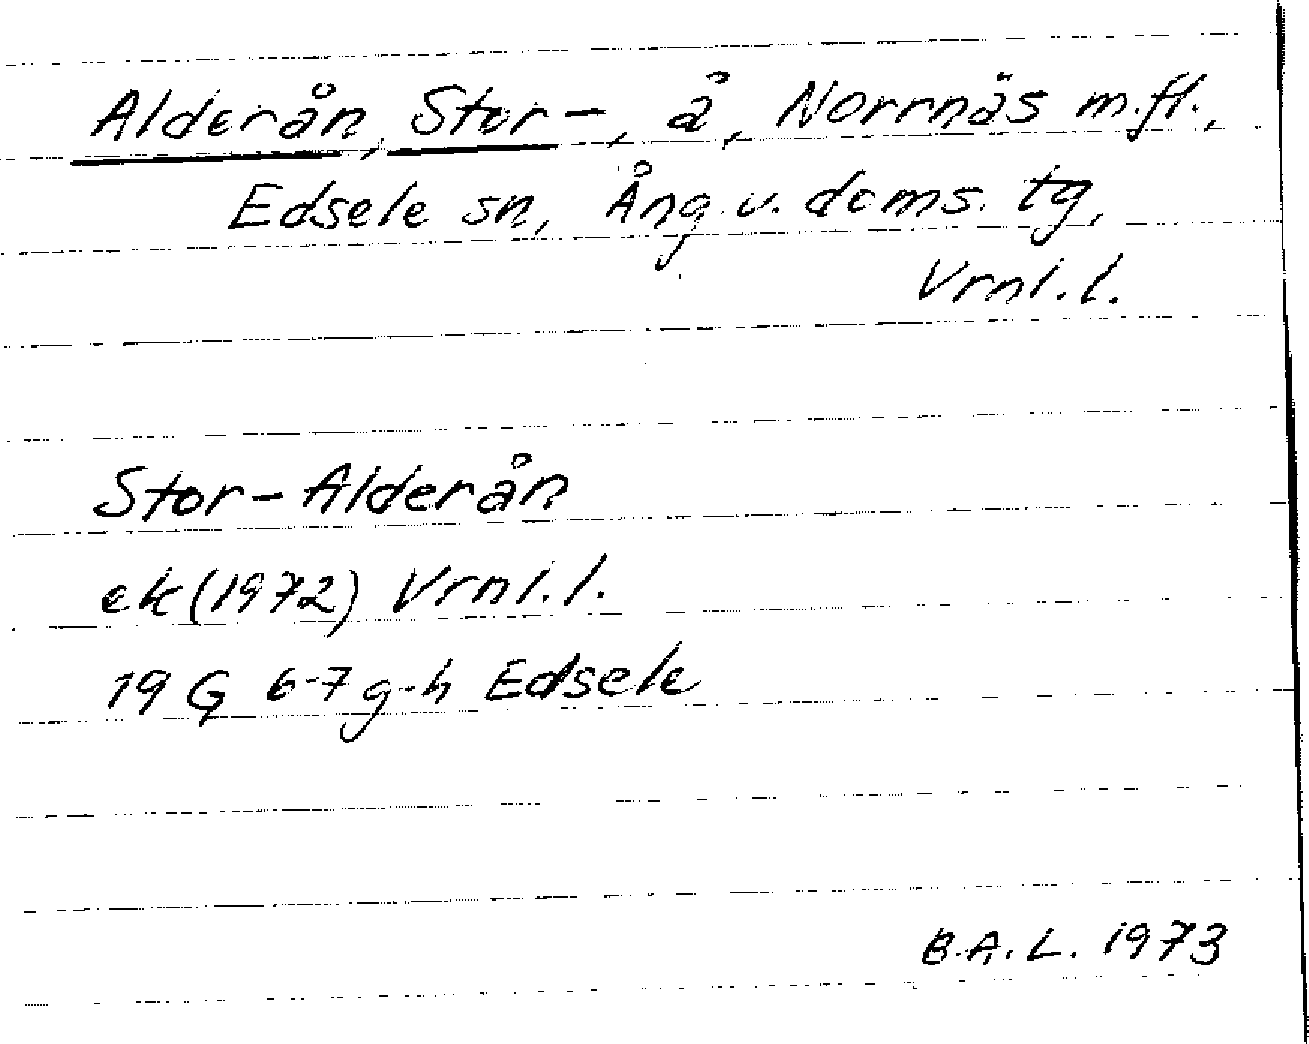 Alderån, Stor-, å, Norrnäs m.fl.,
Edsele sn, Ång. v. doms. tg,
Vrnl.l.
Stor-Alderån
ek (1972) Vrnl.l.
19 G 6-7 g-h Edsele
B.A.L. 1973